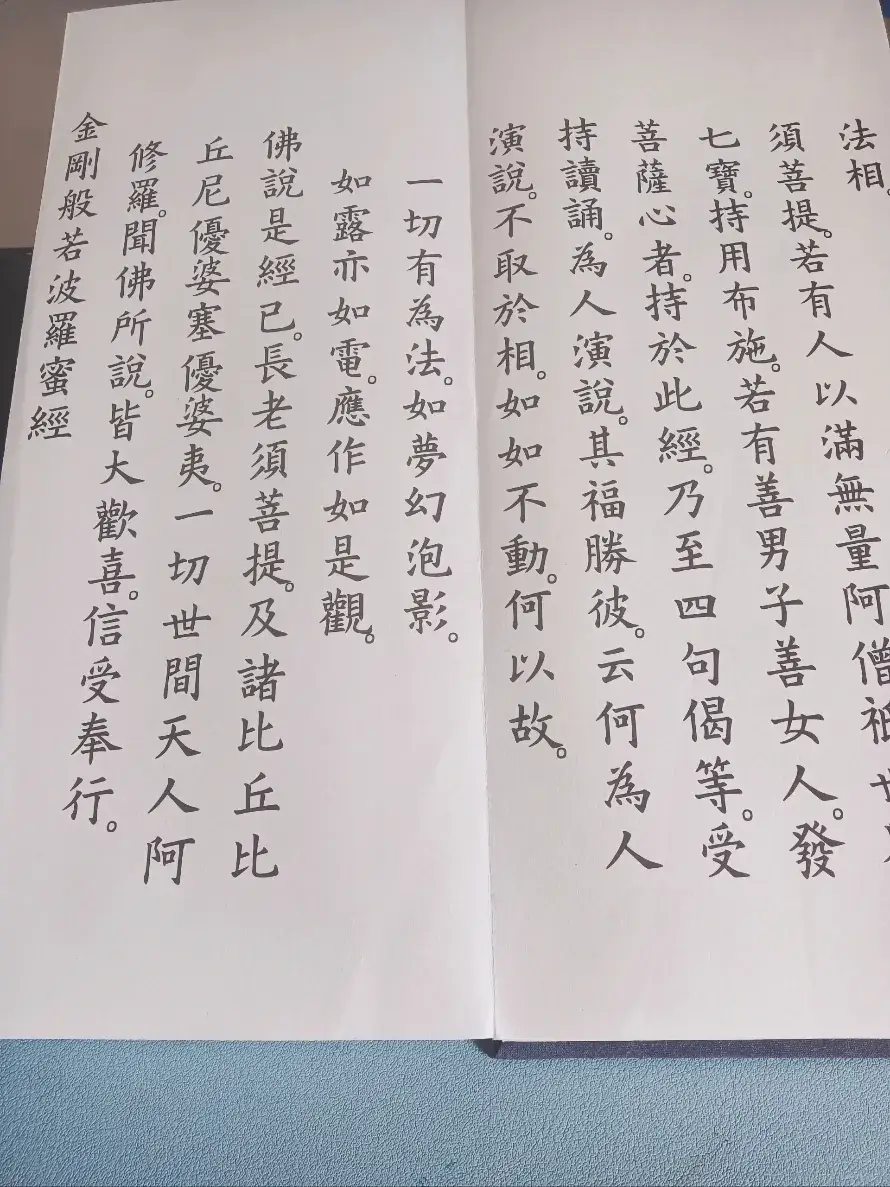 法相。
須菩提。若有人以滿無量阿僧祇世
七寶。持用布施。若有善男子善女人。發
菩薩心者。持於此經。乃至四句偈等。受
持讀誦。為人演說。其福勝彼。云何為人
演說。不取於相。如如不動。何以故。
一切有為法。如夢幻泡影。
如露亦如電。應作如是觀。
佛說是經已。長老須菩提。及諸比丘比
丘尼優婆塞優婆夷。一切世間天人阿
修羅。聞佛所說。皆大歡喜。信受奉行。
金剛般若波羅蜜經